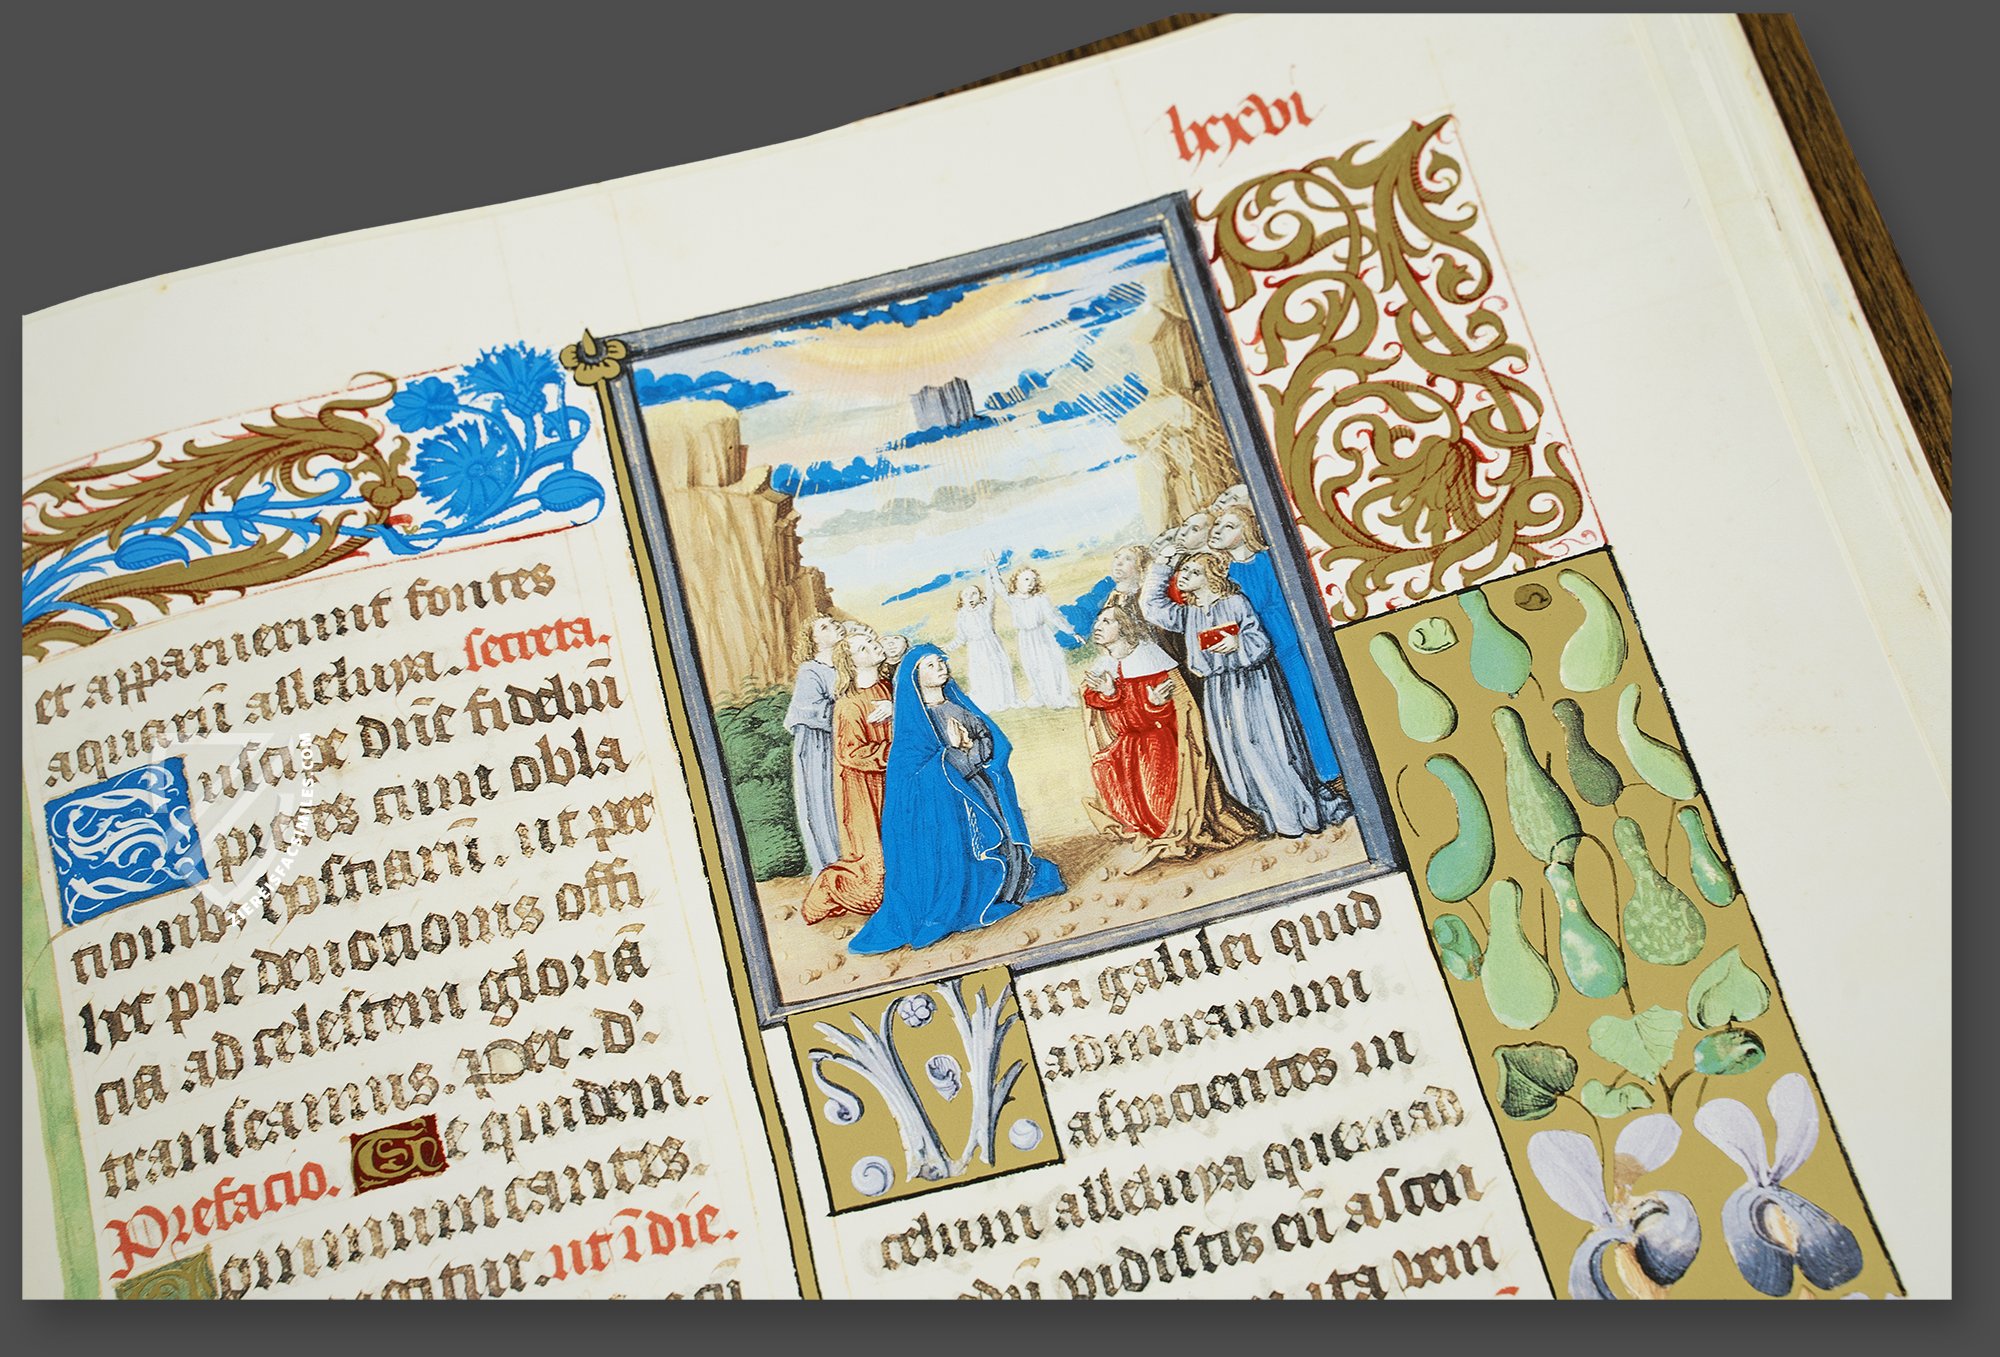 lxxvi
et apparuerunt fontes
aquarū alleluya. secreta.
Suscipe dn̄e fidelıū
preces cum obla
tionibꝫ hostiarū. ut per
hec pie deuotionis offi
cia ad celestem gloriā
transeamus. per. d'.
Prefacio. Te quidem.
Communicantes.
ut ī die.
Viri galilei quid
admiramini
aspicientes in
celum alleluya quemad
modū vidistis eū ascen
ita veni
ZIEREISFACSIMILES.COM